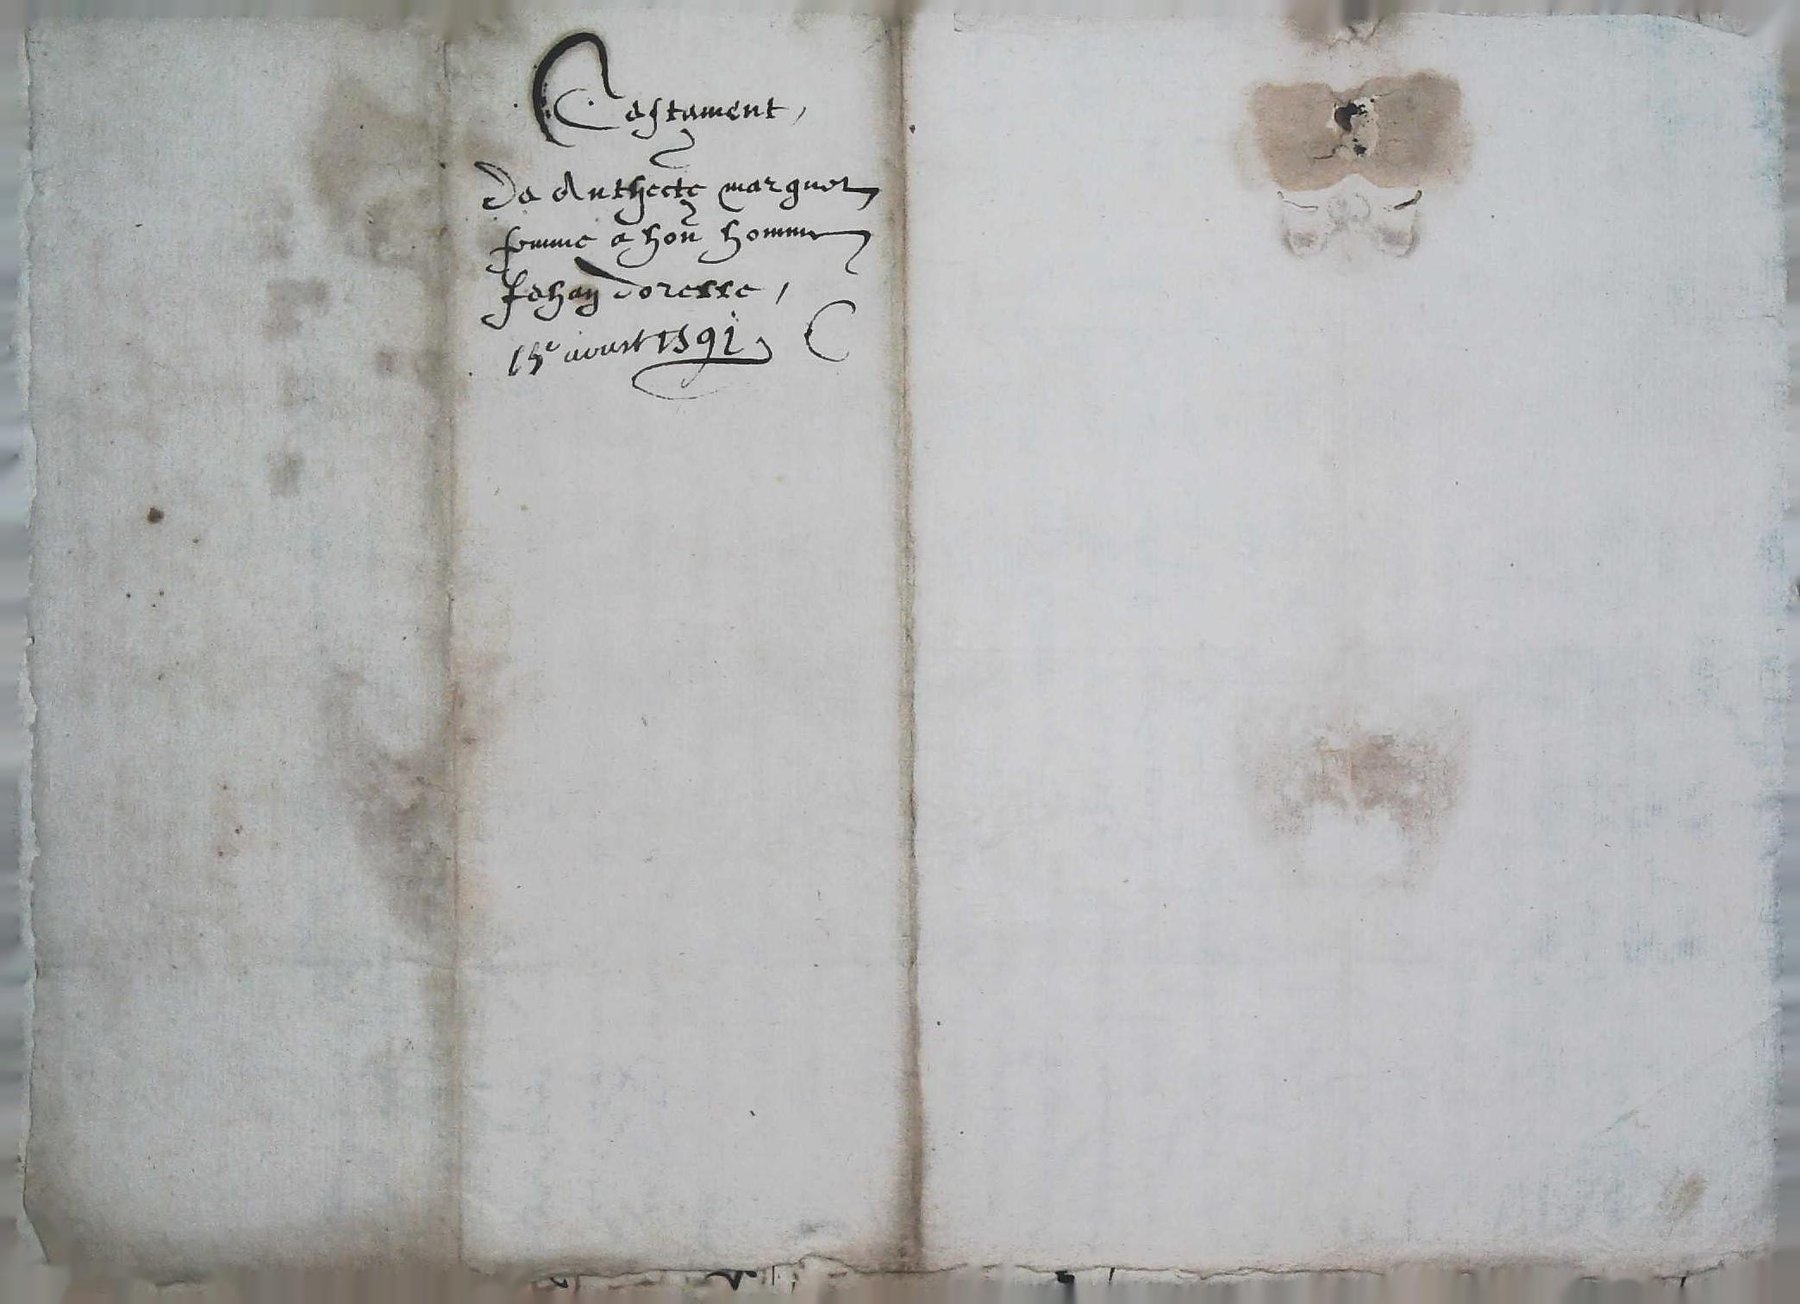 Testament,
De Anthecte marguet
femme a hon homme
Jehan Dorelle,
15e aoust 1591